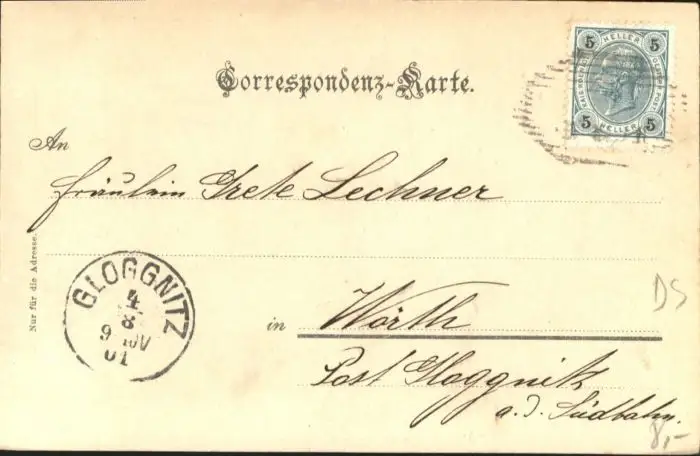 Correspondenz-Karte.
5 HELLER 5
5 HELLER 5
An
Fräulein Grete Lechner
Nur für die Adresse.
GLOGGNITZ
4
8
9 IOV
01
in Wörth
Post Gloggnitz
a. d. Südbahn.
DS
8,-